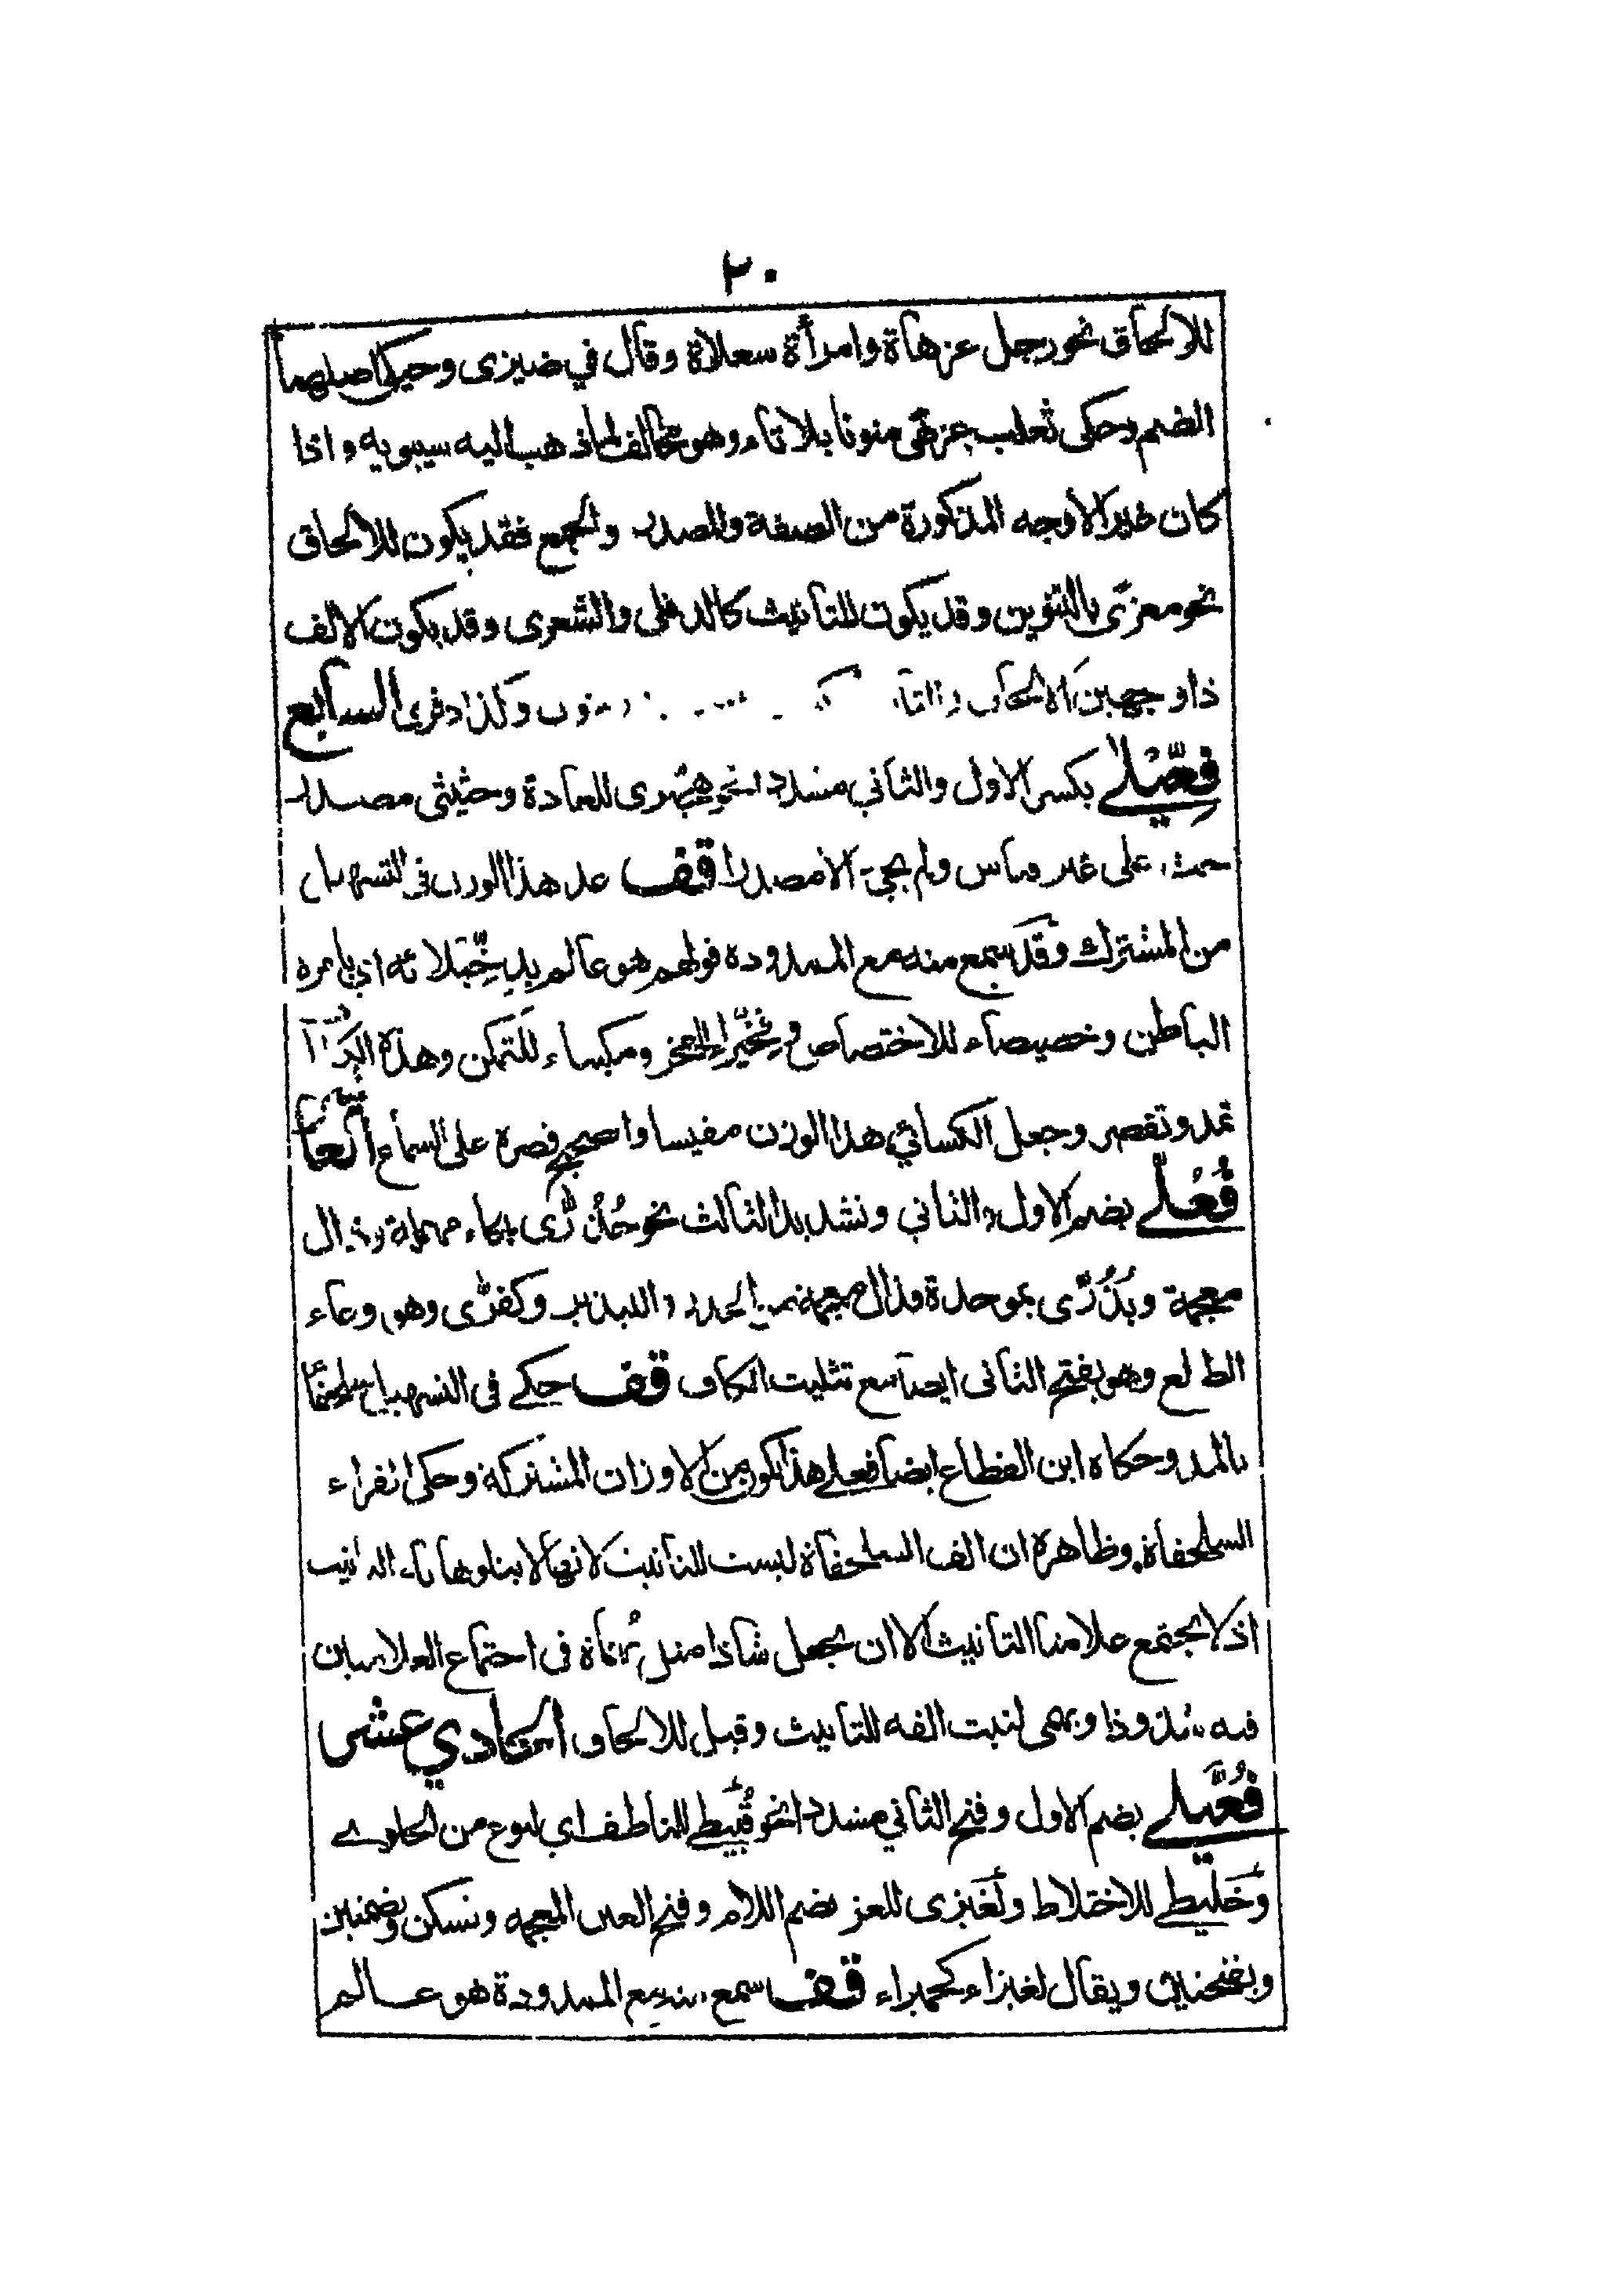 ٢٠
للالحاق نحو رجل عزهاة وامرأة سعلاة وقال في ضيزى وحيكى اصلهما
الضم وحكى ثعلب عزهى منونا بلا تاء وهو مخالف لما ذهب اليه سيبويه واذا
كان غير الأوجه المذكورة من الصفة والمصدر والجمع فقد يكون للالحاق
نحو معزى بالتنوين وقد يكون للتانيث كالدفلى والشعرى وقد يكون الالف
ذا وجهين الالحاق والتا وكذا دفرى السابع
فعيلى بكسر الاول والثاني مشددا نحو هجيرى للعادة وحثيثى مصدر
حث على غير قياس ولم يجئ الا مصدرا قف عد هذا الوزن في التسهيل
من المشترك وقد سمع منه مع الممدودة قولهم هو عالم بدخيلائه اي بامره
الباطن وخصيصاء للاختصاص وفخيراء للفخر ومكيناء للتمكن وهذه
تمد وتقصر وجعل الكسائي هذا الوزن مقيسا واصحيح قصره على السماع
فعلى بضم الاول والثاني وتشديد الثالث نحو حذرى بحاء مهملة وذال
معجمة وبذرى بموحدة وذال معجمة من الحذر والتبذير وكفرى وهو وعاء
الطلع وهو بفتح الثاني ايضا مع تثليث الكاف قف حكى في التسهيل سلحفا
بالمد وحكاه ابن القطاع ايضا فعلى هذا يكون من الاوزان المشتركة وحكى الفراء
السلحفاة وظاهره ان الف السلحفاة ليست للتانيث لانها لا يتلوها تاء التانيث
اذ لا يجتمع علامتا التانيث الا ان يجعل شاذا مثل بهماة في اجتماع العلامتين
فيه شذوذا وبهمى ليست الفه للتانيث وقيل للالحاق الحادي عشر
فعيلى بضم الاول وفتح الثاني مشددا نحو قبيطى للناطف اي لنوع من الحلوى
وخليطى للاختلاط ولغيزى للغز بضم اللام وفتح الغين المعجمة وتسكن وبضمتين
وبفتحتين ويقال لغيزاء كحميراء قف سمع منه مع الممدودة هو عالم